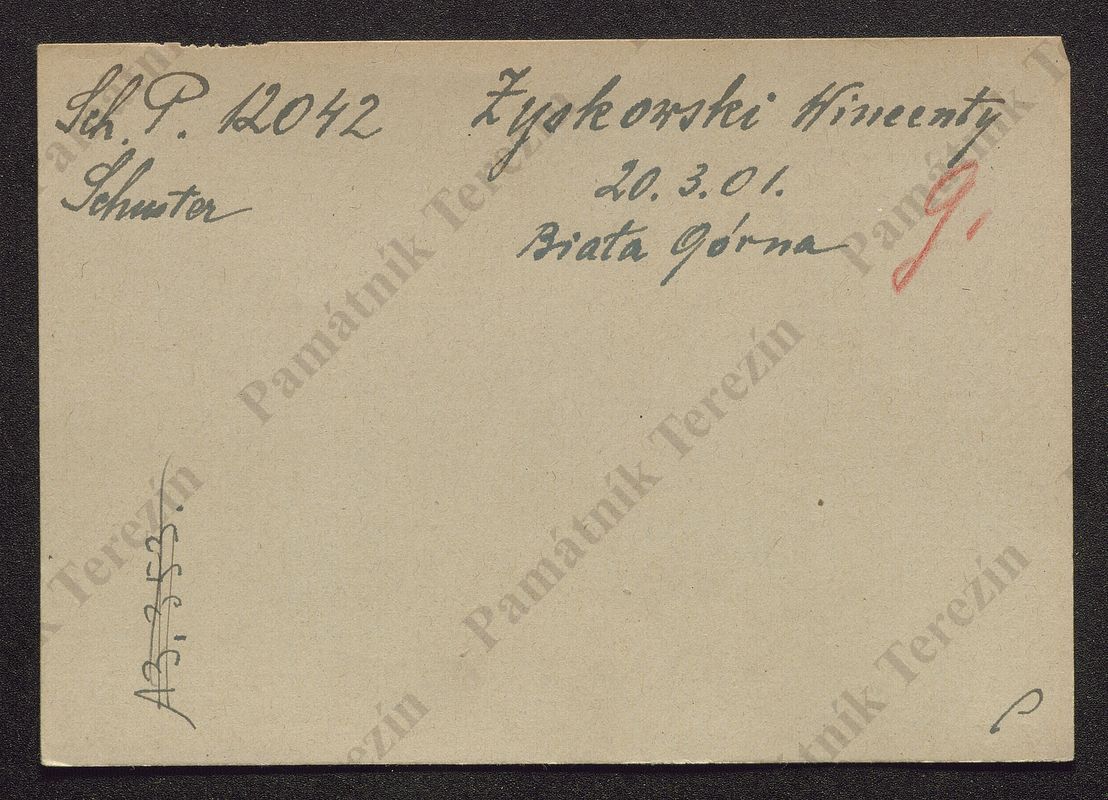 Sch. P. 12042
Schuster
Żyskowski Wincenty
20. 3. 01.
Biała Górna
g.
AB. 353.
P
Památník Terezín
Památník Terezín
Památník Terezín
Památník Terezín
Památník Terezín